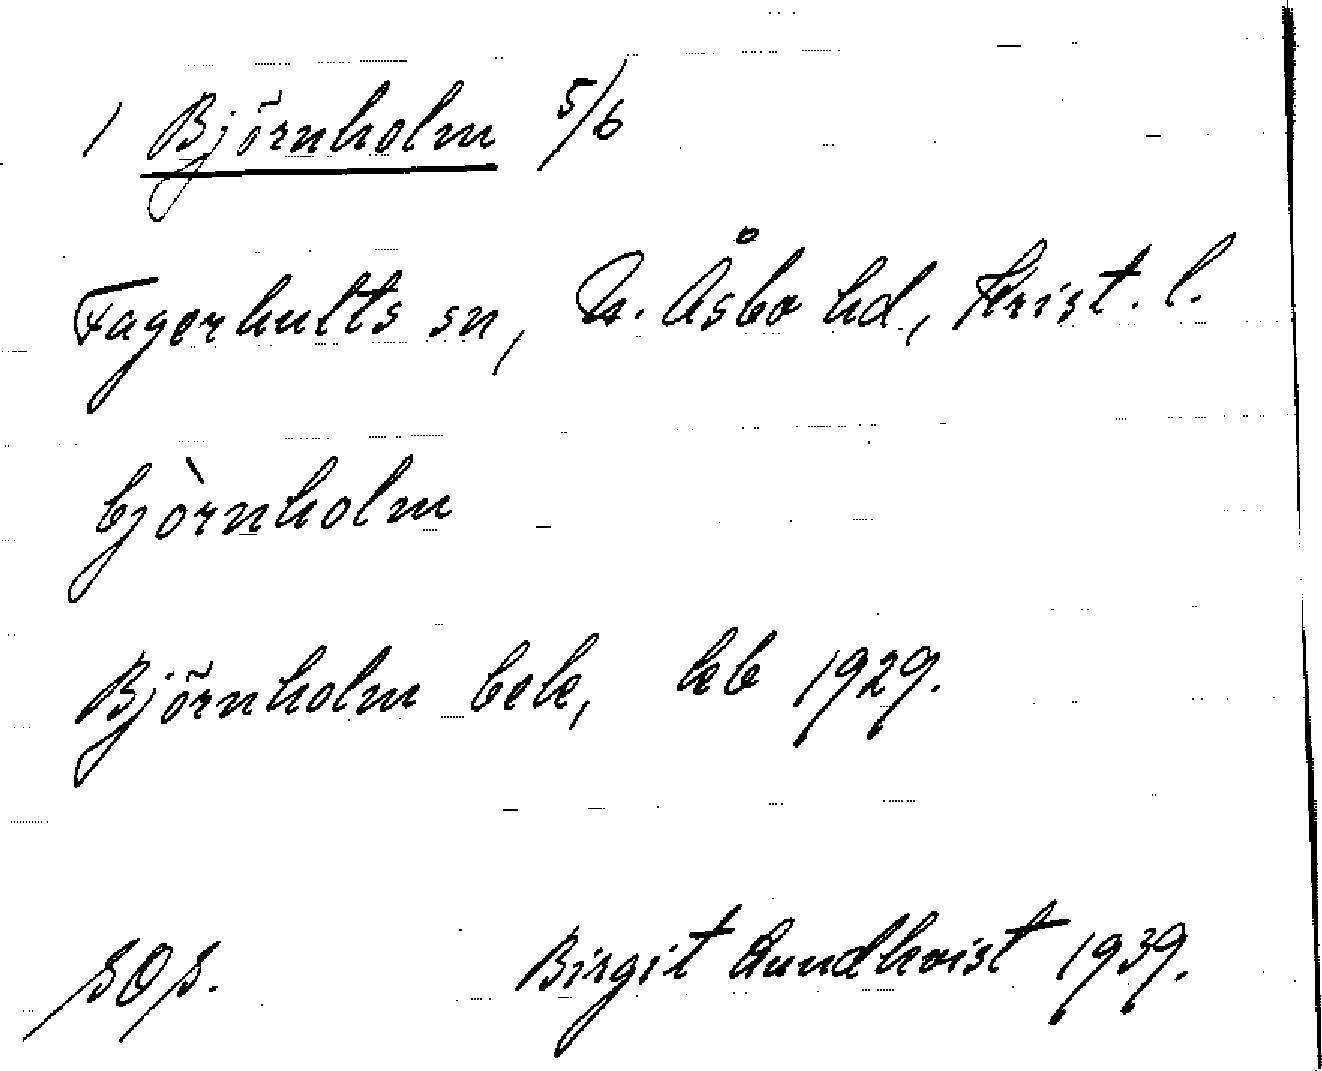 1 Björnholm 5/6
Fagerhults sn, N. Åsbo hd, Krist. l.
bjòrnholm
Björnholm bek, kb 1929.
SOS. Birgit Lundkvist 1939.